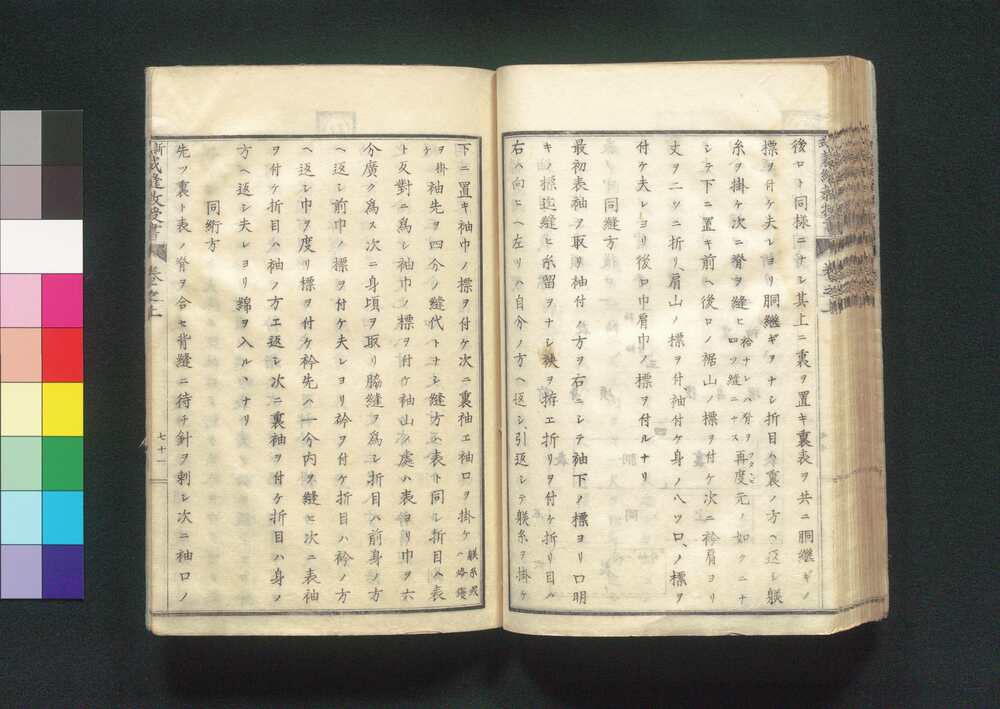 後ロト同様ニナシ其上ニ裏ヲ置キ裏表ヲ共ニ胴継ギノ
標ヲ付ケ夫レヨリ胴継ギヲナシ折目ハ裏ノ方ヘ返シ躾
糸ヲ掛ケ次ニ脊ヲ縫ヒ袷ナレハ脊ヲフタツニ四ツ縫ニナス再度元ノ如クニナ
シテ下ニ置キ前ヘ後ロノ裾山ノ標ヲ付ケ次ニ衿肩ヨリ
丈ヲ二ツニ折リ肩山ノ標ヲ付袖付ケ身ノ八ツ口ノ標ヲ
付ケ夫レヨリ後ロ巾肩巾ノ標ヲ付ルナリ
同縫方
最初表袖ヲ取リ袖付ノ方ヲ右ニシテ袖下ノ標ヨリ口明
キノ標迄縫ヒ糸留ヲナシ袂ヲ折エ折リヲ付ケ折リ目ハ
右ハ向ヒヘ左リハ自分ノ方ヘ返シ引返シテ躾糸ヲ掛ケ
下ニ置キ袖巾ノ標ヲ付ケ次ニ裏袖エ袖口ヲ掛ケ
ヲ掛ケ袖先ヲ四分ノ縫代トナシ縫方ハ表ト同シ折目ハ表
ト反對ニ為シ袖巾ノ標ヲ付ケ袖山ノ處ハ表ヨリ巾ヲ六
分廣ク為ス次ニ身頃ヲ取リ脇縫ヲ為シ折目ハ前身ノ方
ヘ返シ前巾ノ標ヲ付ケ夫レヨリ衿ヲ付ケ折目ハ衿ノ方
ヘ返シ巾ヲ度リ標ヲ付ケ衿先ハ一分内ヲ縫ヒ次ニ表袖
ヲ付ケ折目ハ袖ノ方エ返シ次ニ裏袖ヲ付ケ折目ハ身ノ
方ヘ返シ夫レヨリ綿ヲ入ルヽナリ
同絎方
先ツ裏ト表ノ脊ヲ合セ背縫ニ待チ針ヲ刺シ次ニ袖口ノ
裁縫教授書 巻之上
七十一